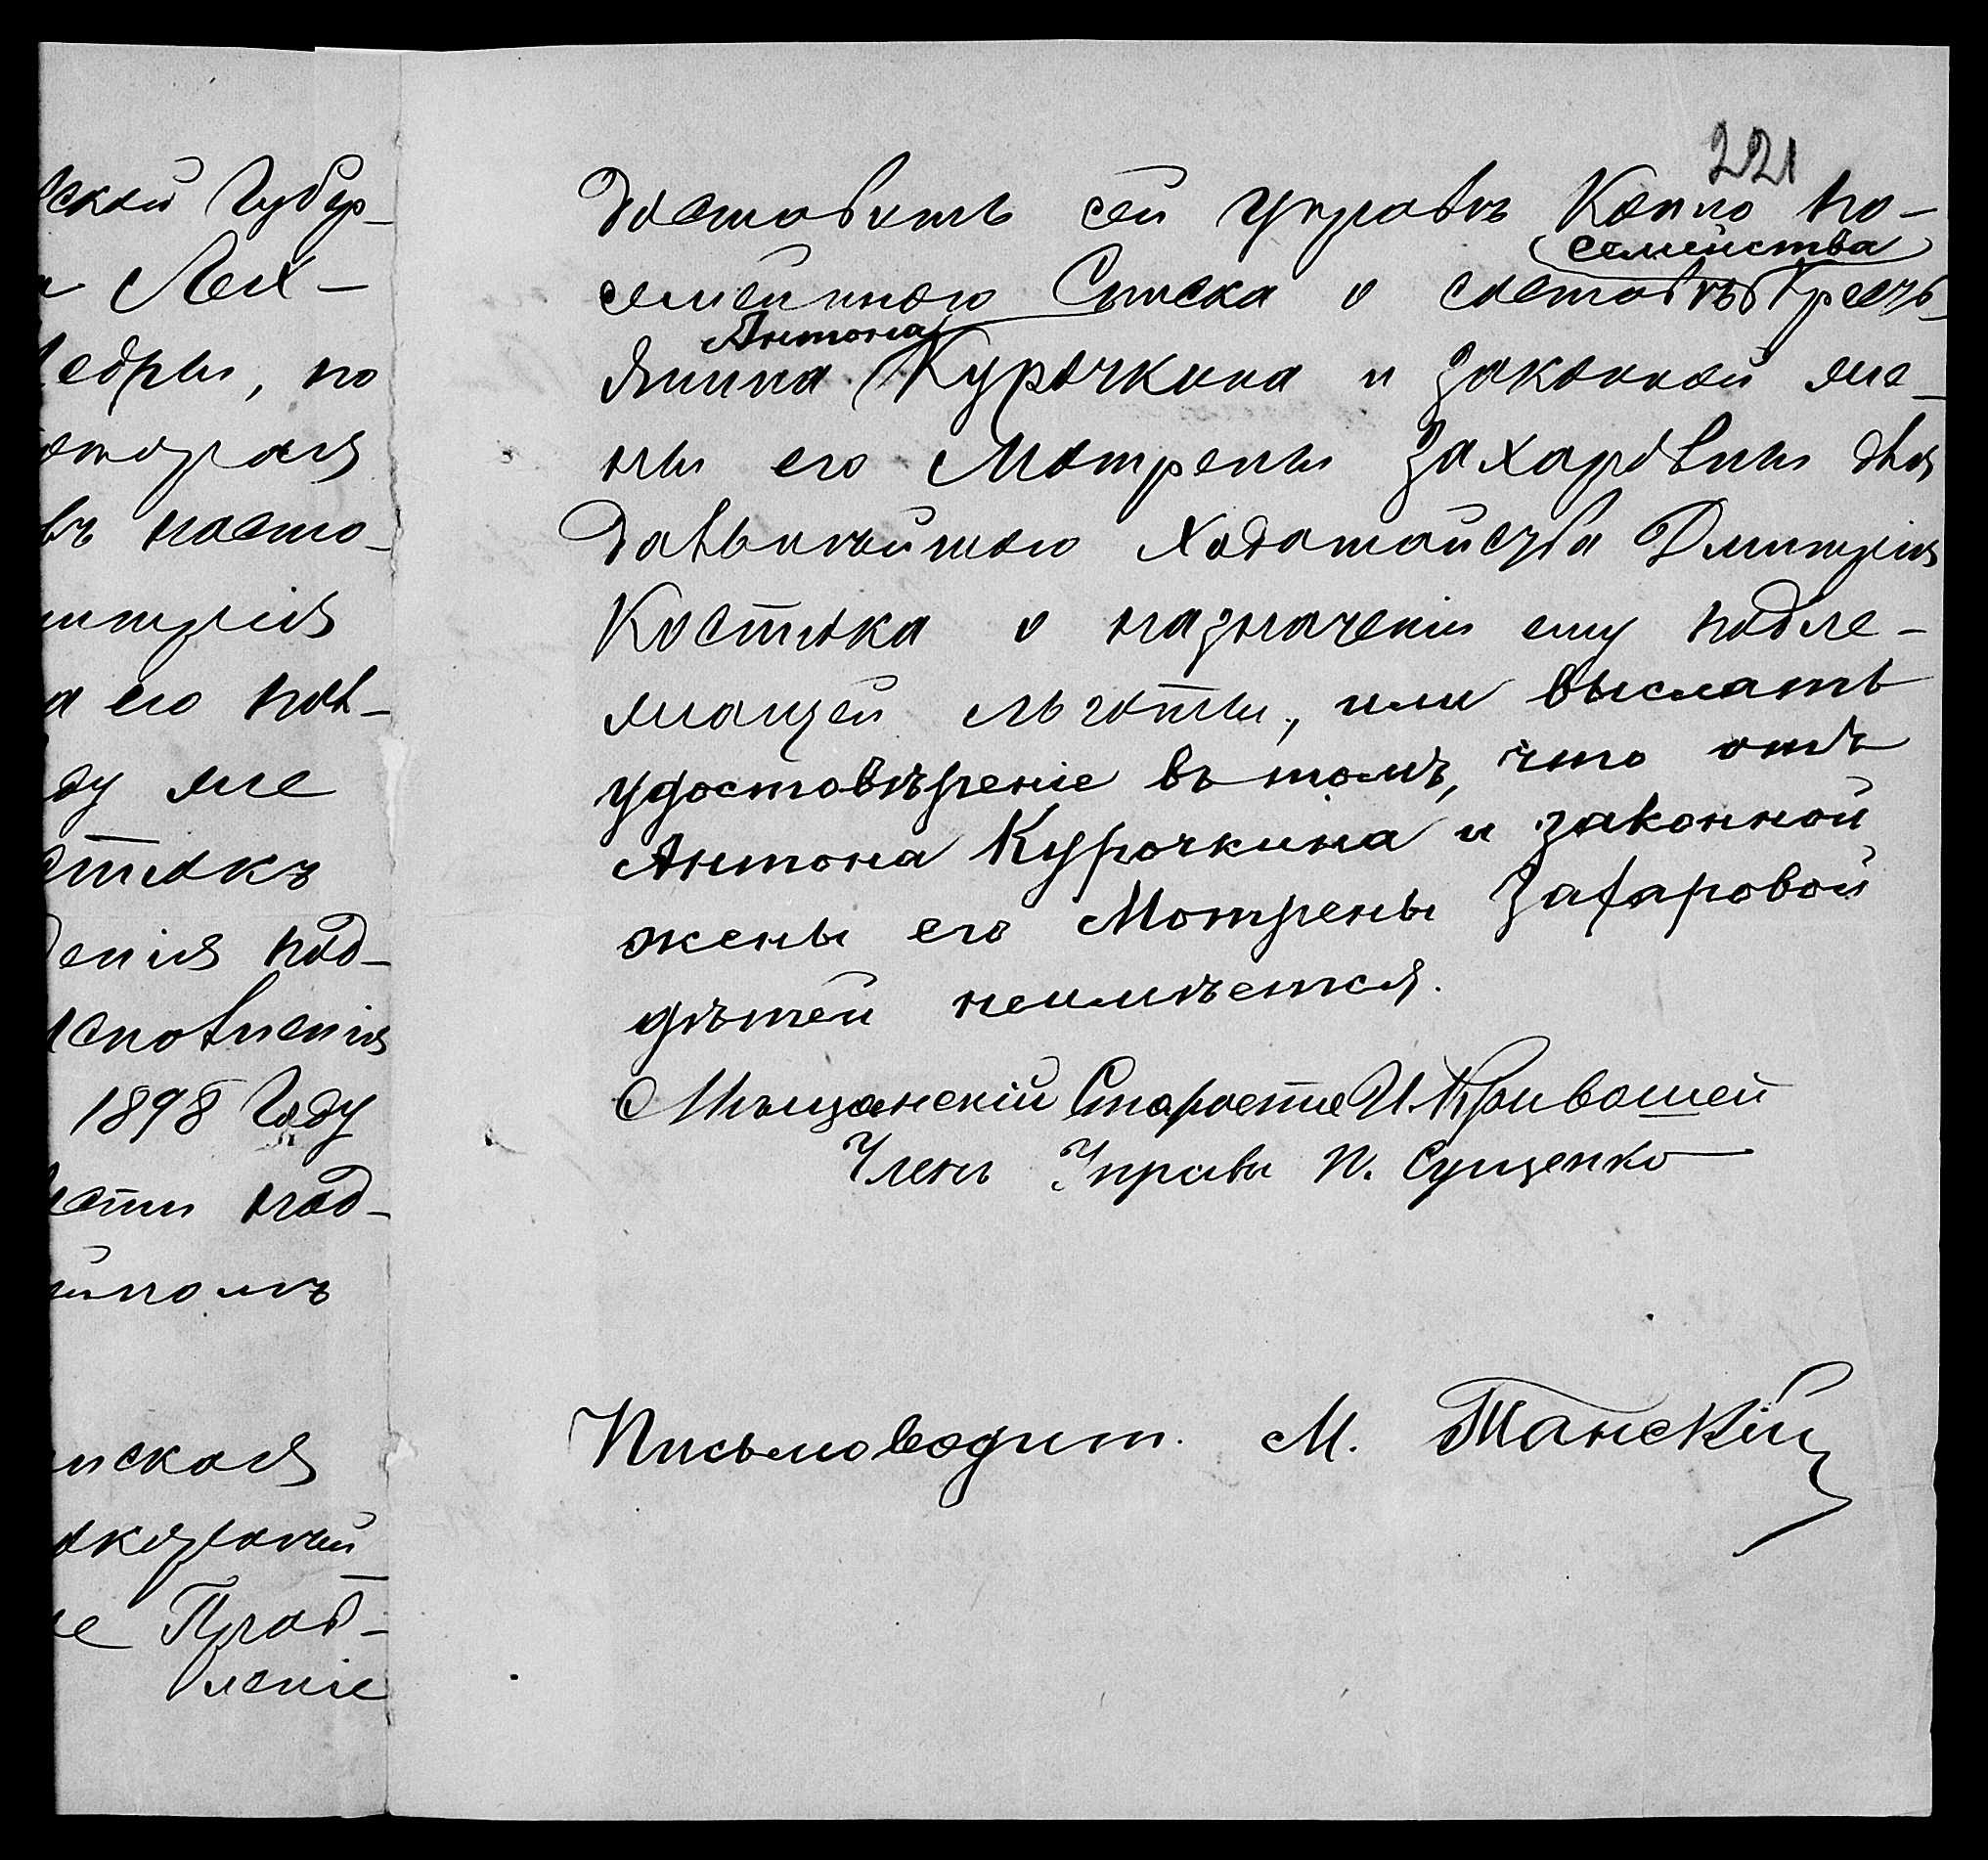 ской Губер-
Лех-
едры, но
оторая
въ насто-
митрія
а его пол-
ду же
остюкъ
денія под-
исполненія
1898 Году
ости под-
нскоя
окорной
Прав-
леніе
221
доставить сей управѣ Копію по-
семейства
семейнаго Списка о составѣ Кресть-
Антона
янина Курочкина и законной же-
ны его Мотрены Захаровны для
дальнѣйшаго Ходатайства Дмитрія
Костюка о назначеніи ему подле-
жащей льготы, или выслать
удостовѣреніе въ томъ, что отъ
Антона Курочкина и законной
жены его Мотрены Захаровой
дѣтей неимѣется.
Мѣщанскій Староста И. Кривошей
Членъ Управы П. Сущенко
Письмоводит. М. Танскій